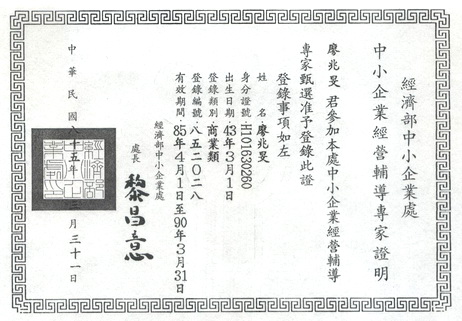 經濟部中小企業處
中小企業經營輔導專家證明
廖兆旻 君參加本處中小企業經營輔導
專家甄選准予登錄此證
登錄事項如左
姓名：廖兆旻
身分證號：H101630260
出生日期：43年3月1日
登錄類別：商業類
登錄編號：八五二〇二八
有效期間：85年4月1日至90年3月31日
經濟部中小企業處
處長 黎昌意
中華民國八十五年 月三十一日